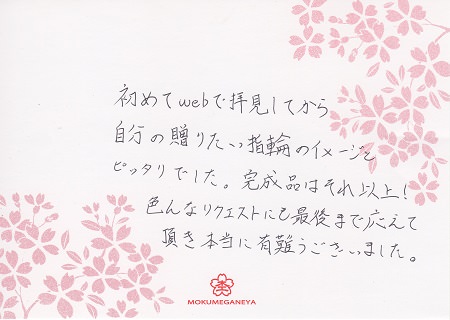 初めてwebで拝見してから
自分の贈りたい指輪のイメージと
ピッタリでした。完成品はそれ以上！
色んなリクエストにも最後まで応えて
頂き本当に有難うございました。
MOKUMEGANEYA